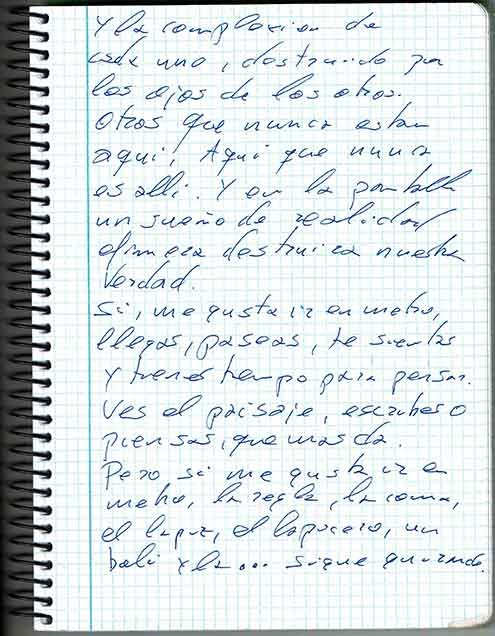 Y la complexion de
cada uno, destruido por
los ojos de los otros.
Otros que nunca estan
aqui, Aqui que nunca
es alli. Y en la pantalla
un sueño de realidad
efimera destruira nuestra
verdad.
Si, me gusta ir en metro,
llegas, paseas, te sientas
y tienes tiempo para pensar.
Ves el paisaje, escribes o
piensas, que mas da.
Pero si me gusta ir en
metro, la regla, la coma,
el lapiz, el lapicero, un
boli y la... sigue